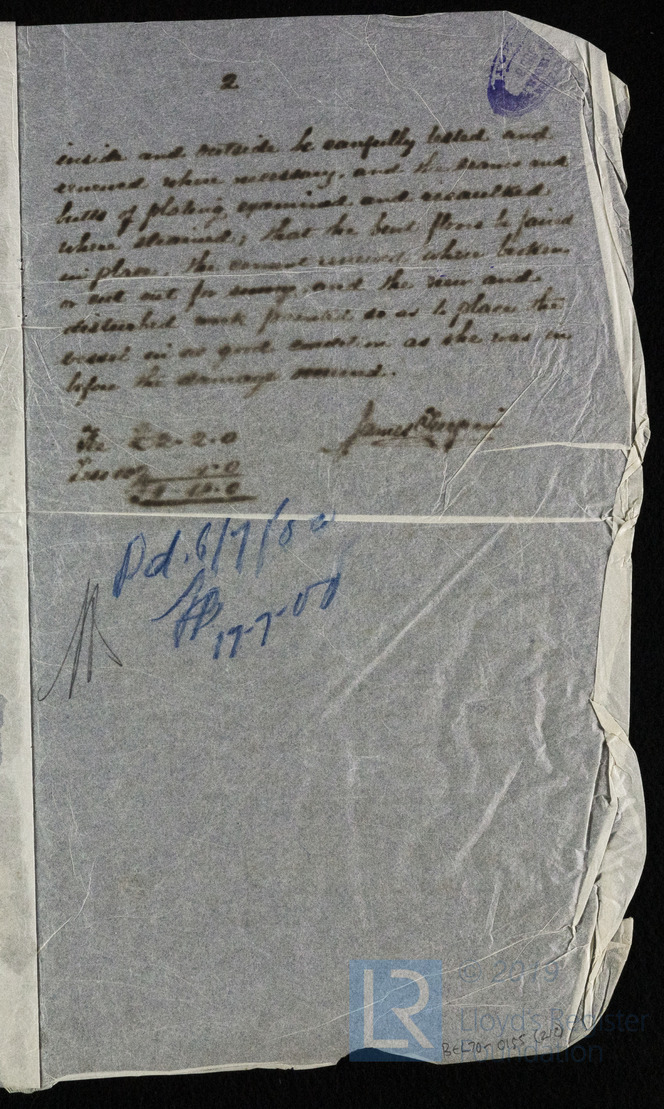 2
inside and outside be carefully tested and
renewed where necessary, and the seams and
butts of plating examined and recaulked
where strained; that the bent floors be faired
in place, the cement renewed where broken
or cut out for survey, and the new and
disturbed work painted so as to place the
vessel in as good condition as she was in
before the damage
Fee £2-2-0
James
Pd. 6/7/
17-7-
LR
© 2019
Lloyd's Register
Foundation